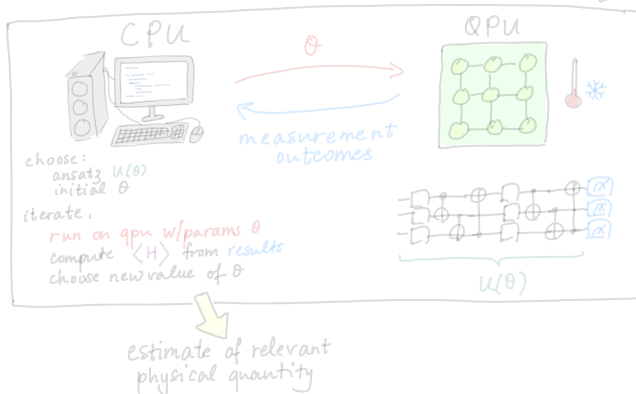 CPU
QPU
θ
measurement
outcomes
choose:
ansatz U(θ)
initial θ
iterate:
run on qpu w/params θ
compute ⟨H⟩ from results
choose new value of θ
U(θ)
estimate of relevant
physical quantity